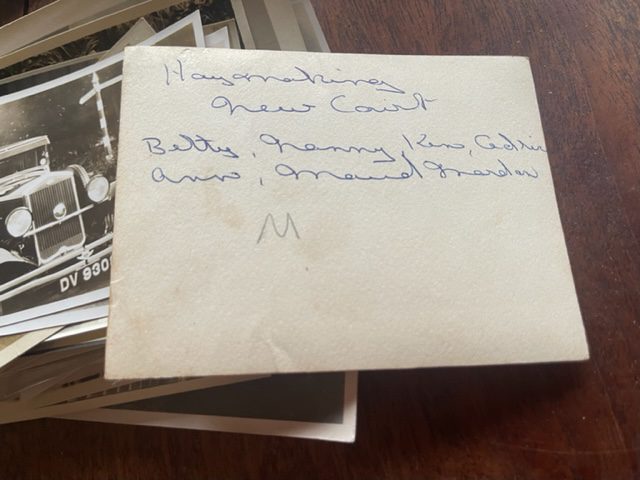 Haymaking
New Court
Betty, Nanny, Ken, Cedric
Ann, Maud Marden
M
DV 930